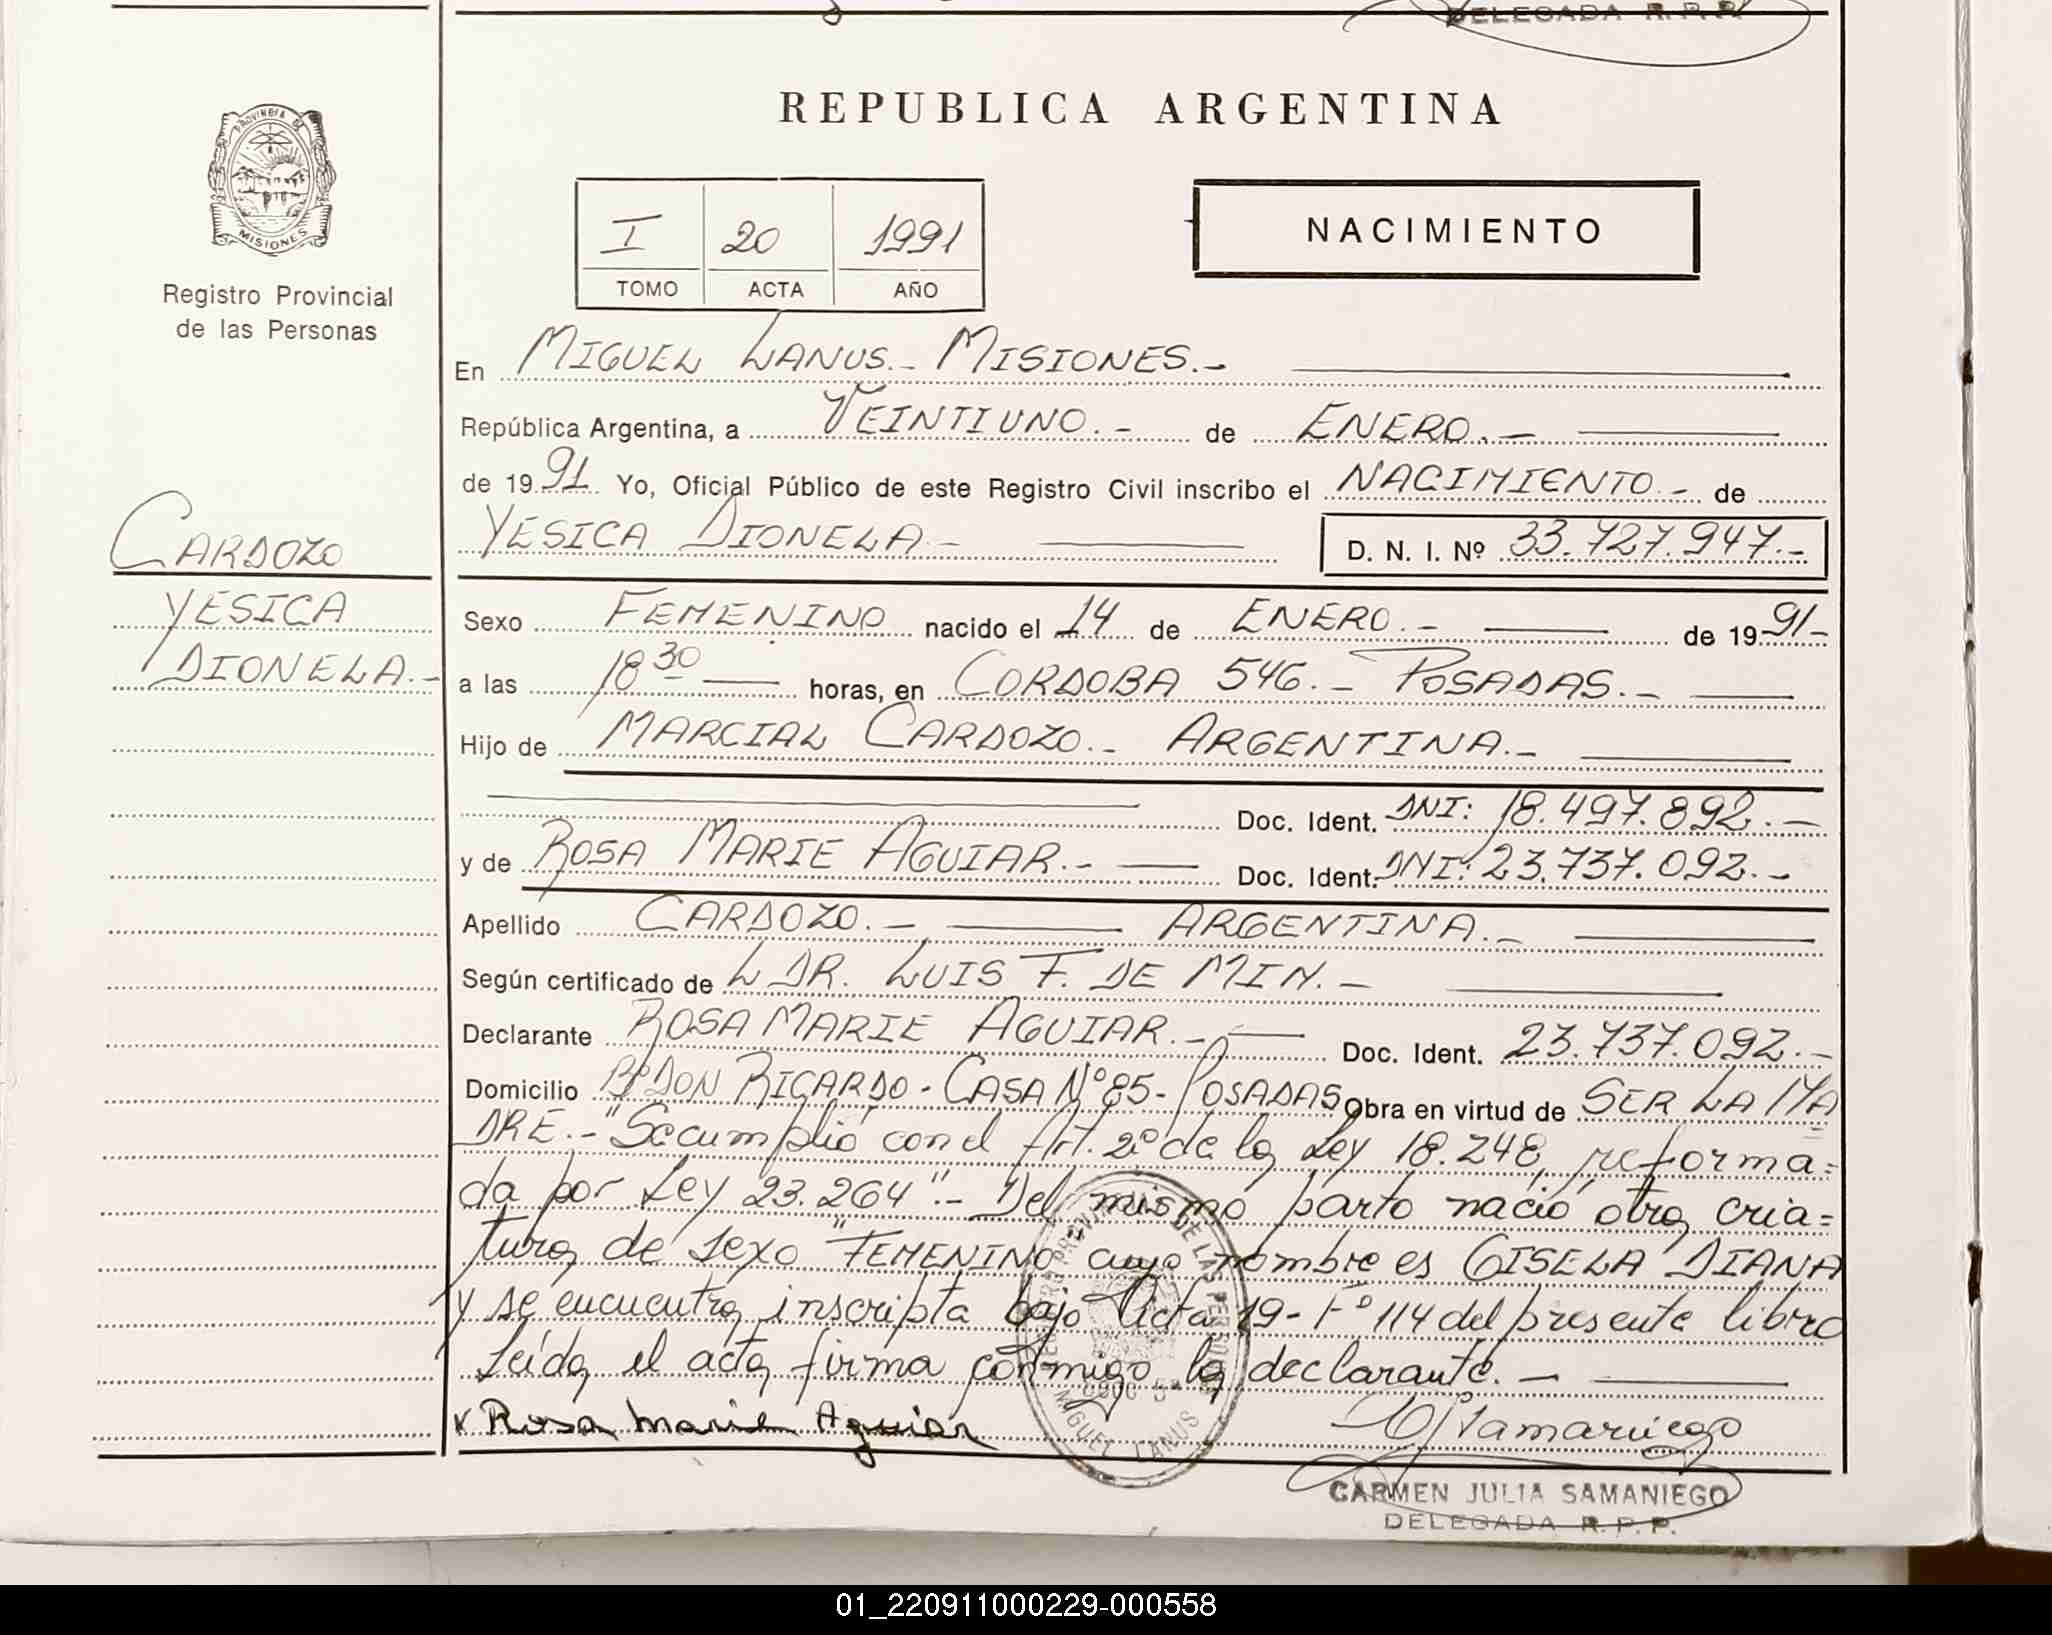 DELEGADA R. P. P.
PROVINCIA DE
MISIONES
Registro Provincial
de las Personas
CARDOZO
YESICA
DIONELA.-
REPUBLICA ARGENTINA
I 20 1991
TOMO ACTA AÑO
NACIMIENTO
En MIGUEL LANUS.- MISIONES.-
República Argentina, a VEINTIUNO.- de ENERO.-
de 1991 Yo, Oficial Público de este Registro Civil inscribo el NACIMIENTO.- de
YESICA DIONELA.- D. N. I. Nº 33.727.947.-
Sexo FEMENINO nacido el 14 de ENERO.- de 1991-
a las 18 30 horas, en CORDOBA 546.- POSADAS.-
Hijo de MARCIAL CARDOZO.- ARGENTINA.-
Doc. Ident. DNI: 18.497.892.-
y de ROSA MARIE AGUIAR.- Doc. Ident. DNI: 23.737.092.-
Apellido CARDOZO.- ARGENTINA.-
Según certificado de L DR. LUIS F. DE MIN.-
Declarante ROSA MARIE AGUIAR.- Doc. Ident. 23.737.092.-
Domicilio Bº DON RICARDO - CASA Nº 85 - POSADAS Obra en virtud de SER LA MA
DRE.- "Se cumplió con el Art. 2º de la Ley 18.248, reforma=
da por Ley 23.264".- Del mismo parto nació otra cria=
tura de sexo "FEMENINO cuyo nombre es GISELA DIANA
y se encuentra inscripta bajo Acta 19 - Fº 114 del presente libro
Leída el acta firma conmigo la declarante.-
x Rosa Marie Aguiar
CJSamaniego
MIGUEL LANUS
CARMEN JULIA SAMANIEGO
DELEGADA R. P. P.
01_220911000229-000558